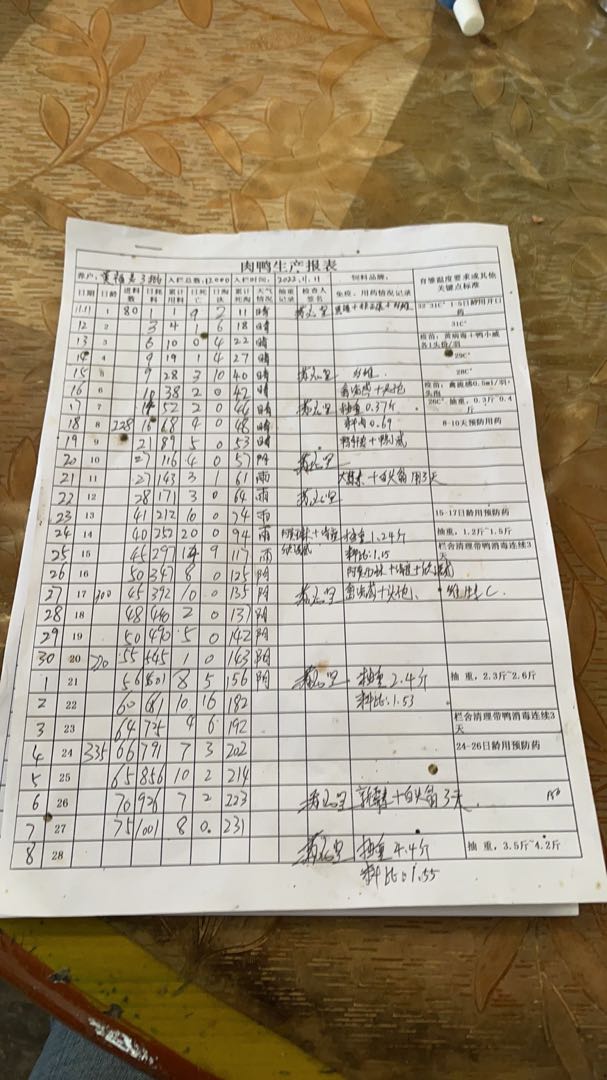 肉鸭生产报表
养户: 入栏总数:12000 入栏时间: 2022.11.11 饲料品牌: 育雏温度要求或其他关键点标准
日期 日龄 进料数 日耗料 累计用料 日死亡 日淘汰 累计死淘 天气情况 抽重记录 检查人签名 免疫、用药情况记录
11.11 1 80 1 1 9 2 11 晴 32-31C° 1-5日龄用开口药
12 2 3 4 1 6 18 晴 31C°
13 3 6 10 0 4 22 晴 疫苗:黄病毒+鸭小威各1头份/羽
14 4 9 19 1 4 27 晴 29C°
15 5 9 28 3 10 40 晴 28C°
16 6 10 38 2 0 42 晴 疫苗:禽流感0.5ml/羽·头孢
17 7 14 52 2 0 44 晴 抽重0.37斤 26C° 抽重,0.3斤~0.4斤
18 8 228 16 68 4 0 48 晴 料肉0.69 8-10天预防用药
19 9 21 89 5 0 53 晴
20 10 27 116 4 0 57 阴
21 11 27 143 3 1 61 雨 +白头翁用3天
22 12 28 171 3 0 64 雨
23 13 41 212 10 0 74 雨 15-17日龄用预防药
24 14 40 252 20 0 94 雨 抽重1.24斤 抽重,1.2斤~1.5斤
25 15 45 297 14 9 117 雨 料比:1.15 栏舍清理带鸭消毒连续3天
26 16 50 347 8 0 125 阴
27 17 200 45 392 10 0 135 阴 维生C.
28 18 48 440 2 0 137 阴
29 19 50 490 5 0 142 阴
30 20 55 545 1 0 143 阴
1 21 56 601 8 5 156 阴 抽重2.4斤 抽重,2.3斤~2.6斤
2 22 60 661 10 16 182 料比:1.53
3 23 64 725 4 6 192 栏舍清理带鸭消毒连续3天
4 24 335 66 791 7 3 202 24-26日龄用预防药
5 25 65 856 10 2 214
6 26 70 926 7 2 223 +白头翁3天.
7 27 75 1001 8 0 231
8 28 抽重4.4斤 抽重,3.5斤~4.2斤
料比:1.55